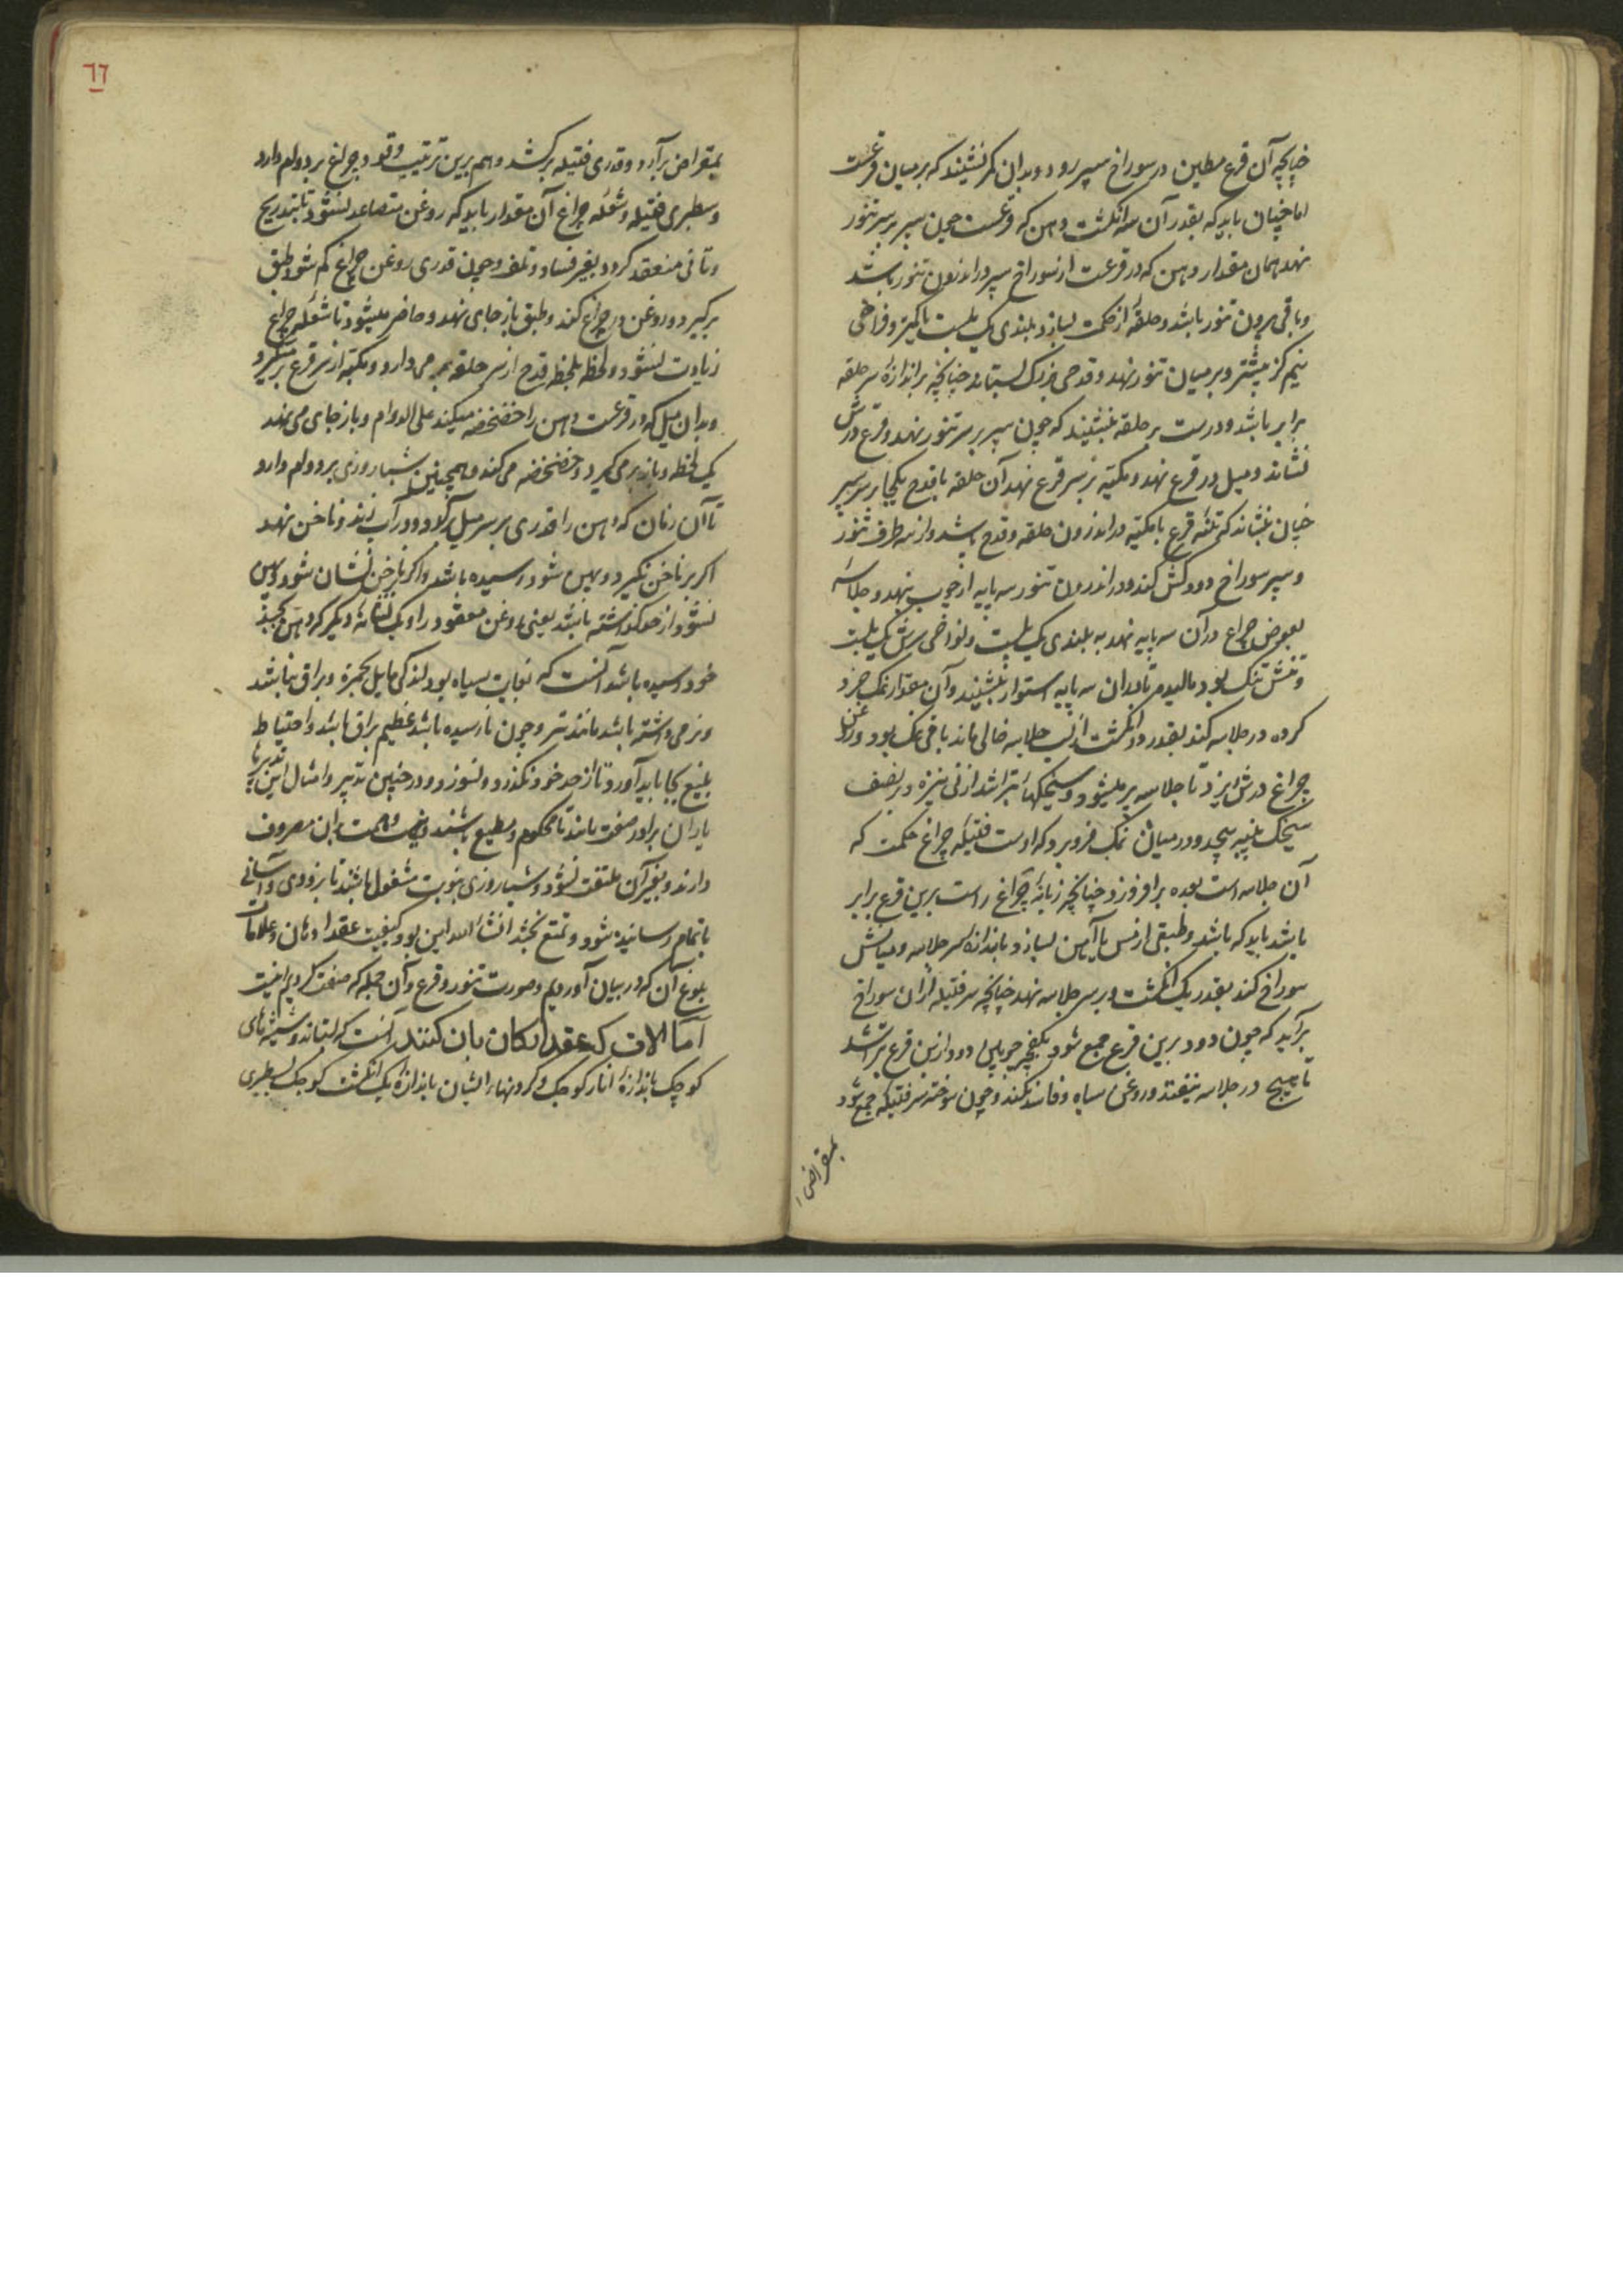 چنانچه آن قرع مطین در سوراخ سپر رود و بدان کمر نشیند که بر میان قرعست
اما چنان باید که بقدر آن سه انکشت دهن که قرعست چون سپر بر سر تنور
نهد همان مقدار دهن که در قرعست از سوراخ سپر در اندرون تنور باشد
و باقی بیرون تنور باشد و حلقهٔ از حکمت بسازد بلندی یک بلست یا کمتر و فراخی
نیم کز بیشتر و بر میان تنور نهد و قدحی بزرک بستاند چنانچه بر اندازهٔ سر حلقه
برابر باشد و درست بر حلقه بنشیند که چون سپر بر سر تنور نهد و قرع درش
نشاند و میل در قرع نهد و مکبه بر سر قرع نهد آن حلقه با قدح یکجا بر سر سپر
چنان بنشاند که تنهٔ قرع با مکبه در اندرون حلقه و قدح باشد و از سه طرف تنور
و سپر سوراخ دودکش کند و در اندرون تنور سه پایه از چوب بنهد و جلاسهٔ
بعوض چراغ در آن سه پایه نهد به بلندی یک بلست و فراخی سرش یک بلست
و تنش تنک بود مالیده تا بدان سه پایه استوار بنشیند و آن مقدار نمک خرد
کرده در جلاسه کند بقدر دو انکشت از لب جلاسه خالی ماند باقی نمک بود و روغن
چراغ درش ریزد تا جلاسه پر میشود و سیخکها بتراشد از نی نیزه در نصف
سیخک پنبه پیچد و در میان نمک فرو برد که او ست فتیله چراغ حکمت که
آن جلاسه است بعده برافروزد چنانچه زبانهٔ چراغ راست برین قرع برابر
باشد باید که باشد و طبقی از مس یا آهن بسازد باندازه سر جلاسه و میانش
سوراخ کند بقدر یک انکشت و بر سر جلاسه نهد چنانچه سر فتیله از آن سوراخ
برآید که چون دود برین قرع جمع شود بکفچه چوبین دود ازین قرع بتراشد
تا هیچ در جلاسه نیفتد و روغن سیاه و فاسد نکند و چون سوخته سر فتیله جمع شود
بمقراض
٦٦
بمقراض برآرد و قدری فتیله برکشد و هم برین ترتیب وقود چراغ بر دوام دارد
و سطبری فتیله و شعله چراغ آن مقدار باید که روغن متصاعد نشود تا بتدریج
و تأنی منعقد کردد بغیر فساد و تلف و چون قدری روغن چراغ کم شود طبق
برکیرد و روغن در چراغ کند و طبق باز جای نهد و حاضر میشود تا شعله چراغ
زیادت نشود و لحظه بلحظه قدح از سر حلقه بر می دارد و مکبه از سر قرع بر میکیرد
و بدان میل که در قرعست دهن را خضخضه میکند علی الدوام و باز جای می نهد
یک لحظه و باز بر می کیرد و خضخضه می کند و همچنین شبار روزی بر دوام دارد
تا آن زمان که دهن را قدری بر سر میل برآورد و در آب زند و ناخن نهد
اکر بر ناخن نکیرد و پهن شود رسیده باشد و اکر ناخن نشان شود و پهن
نشود از حد کذشته باشد یعنی روغن معقود را و یک نشانهٔ دیکر که دهن بحد
خود رسیده باشد آنست که بغایت سیاه بود لندکی مایل بحمرة و براق نباشد
و نرمی داشته باشد مانند تر و چون نارسیده باشد عظیم براق باشد و احتیاط
بلیغ بجا باید آورد تا از حد خود نکذرد و نسوزد و در چنین تدبیر و امثال این تدبیرها
یاران برادر صفت باید تا محکوم و مطیع باشند و نیت و همت بدان مصروف
دارند و بغیر آن ملتفت نشود و شبار روزی بنوبت مشغول باشند تا بزودی و آسانی
باتمام رسانیده شود و تمتع بخشد انشاء الله این بود کیفیت عقد ادهان و علامات
بلوغ آن که در بیان آوردیم و صورت تنور و قرع و آن جمله که صفت کردیم اینست
اما آلات که عقد ارکان بان کنند آنست که بستاند و شیشهای
کوچک باندازهٔ انار کوچک و کردنها ایشان باندازهٔ یک انکشت کوچک بسطبری